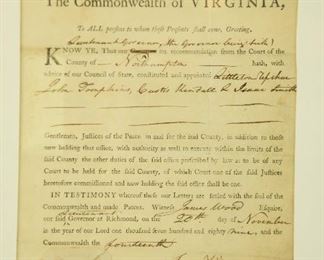 The Commonwealth of VIRGINIA,
To ALL persons to whom these Presents shall come, Greeting.
Lieutenant Governor, the Governor being
KNOW YE, That our recommendation from the Court of the
County of Northampton hath, with
advice of our Council of State, constituted and appointed Littleton Upshur
John Tompkins, Custis Kendall & Isaac Smith
Gentlemen, Justices of the Peace in and for the said County, in addition to those
now holding that office, with authority as well to execute within the limits of the
said County the other duties of the said office prescribed by law as to be of any
Court to be held for the said County, of which Court one of the said Justices
heretofore commissioned and now holding the said office shall be one.
IN TESTIMONY whereof these our Letters are sealed with the seal of the
Commonwealth and made Patent. Witness James Wood Esquire,
Lieutenant
our said Governor at Richmond, on the 20th day of November
in the year of our Lord one thousand seven hundred and eighty nine, and of
the Commonwealth the fourteenth